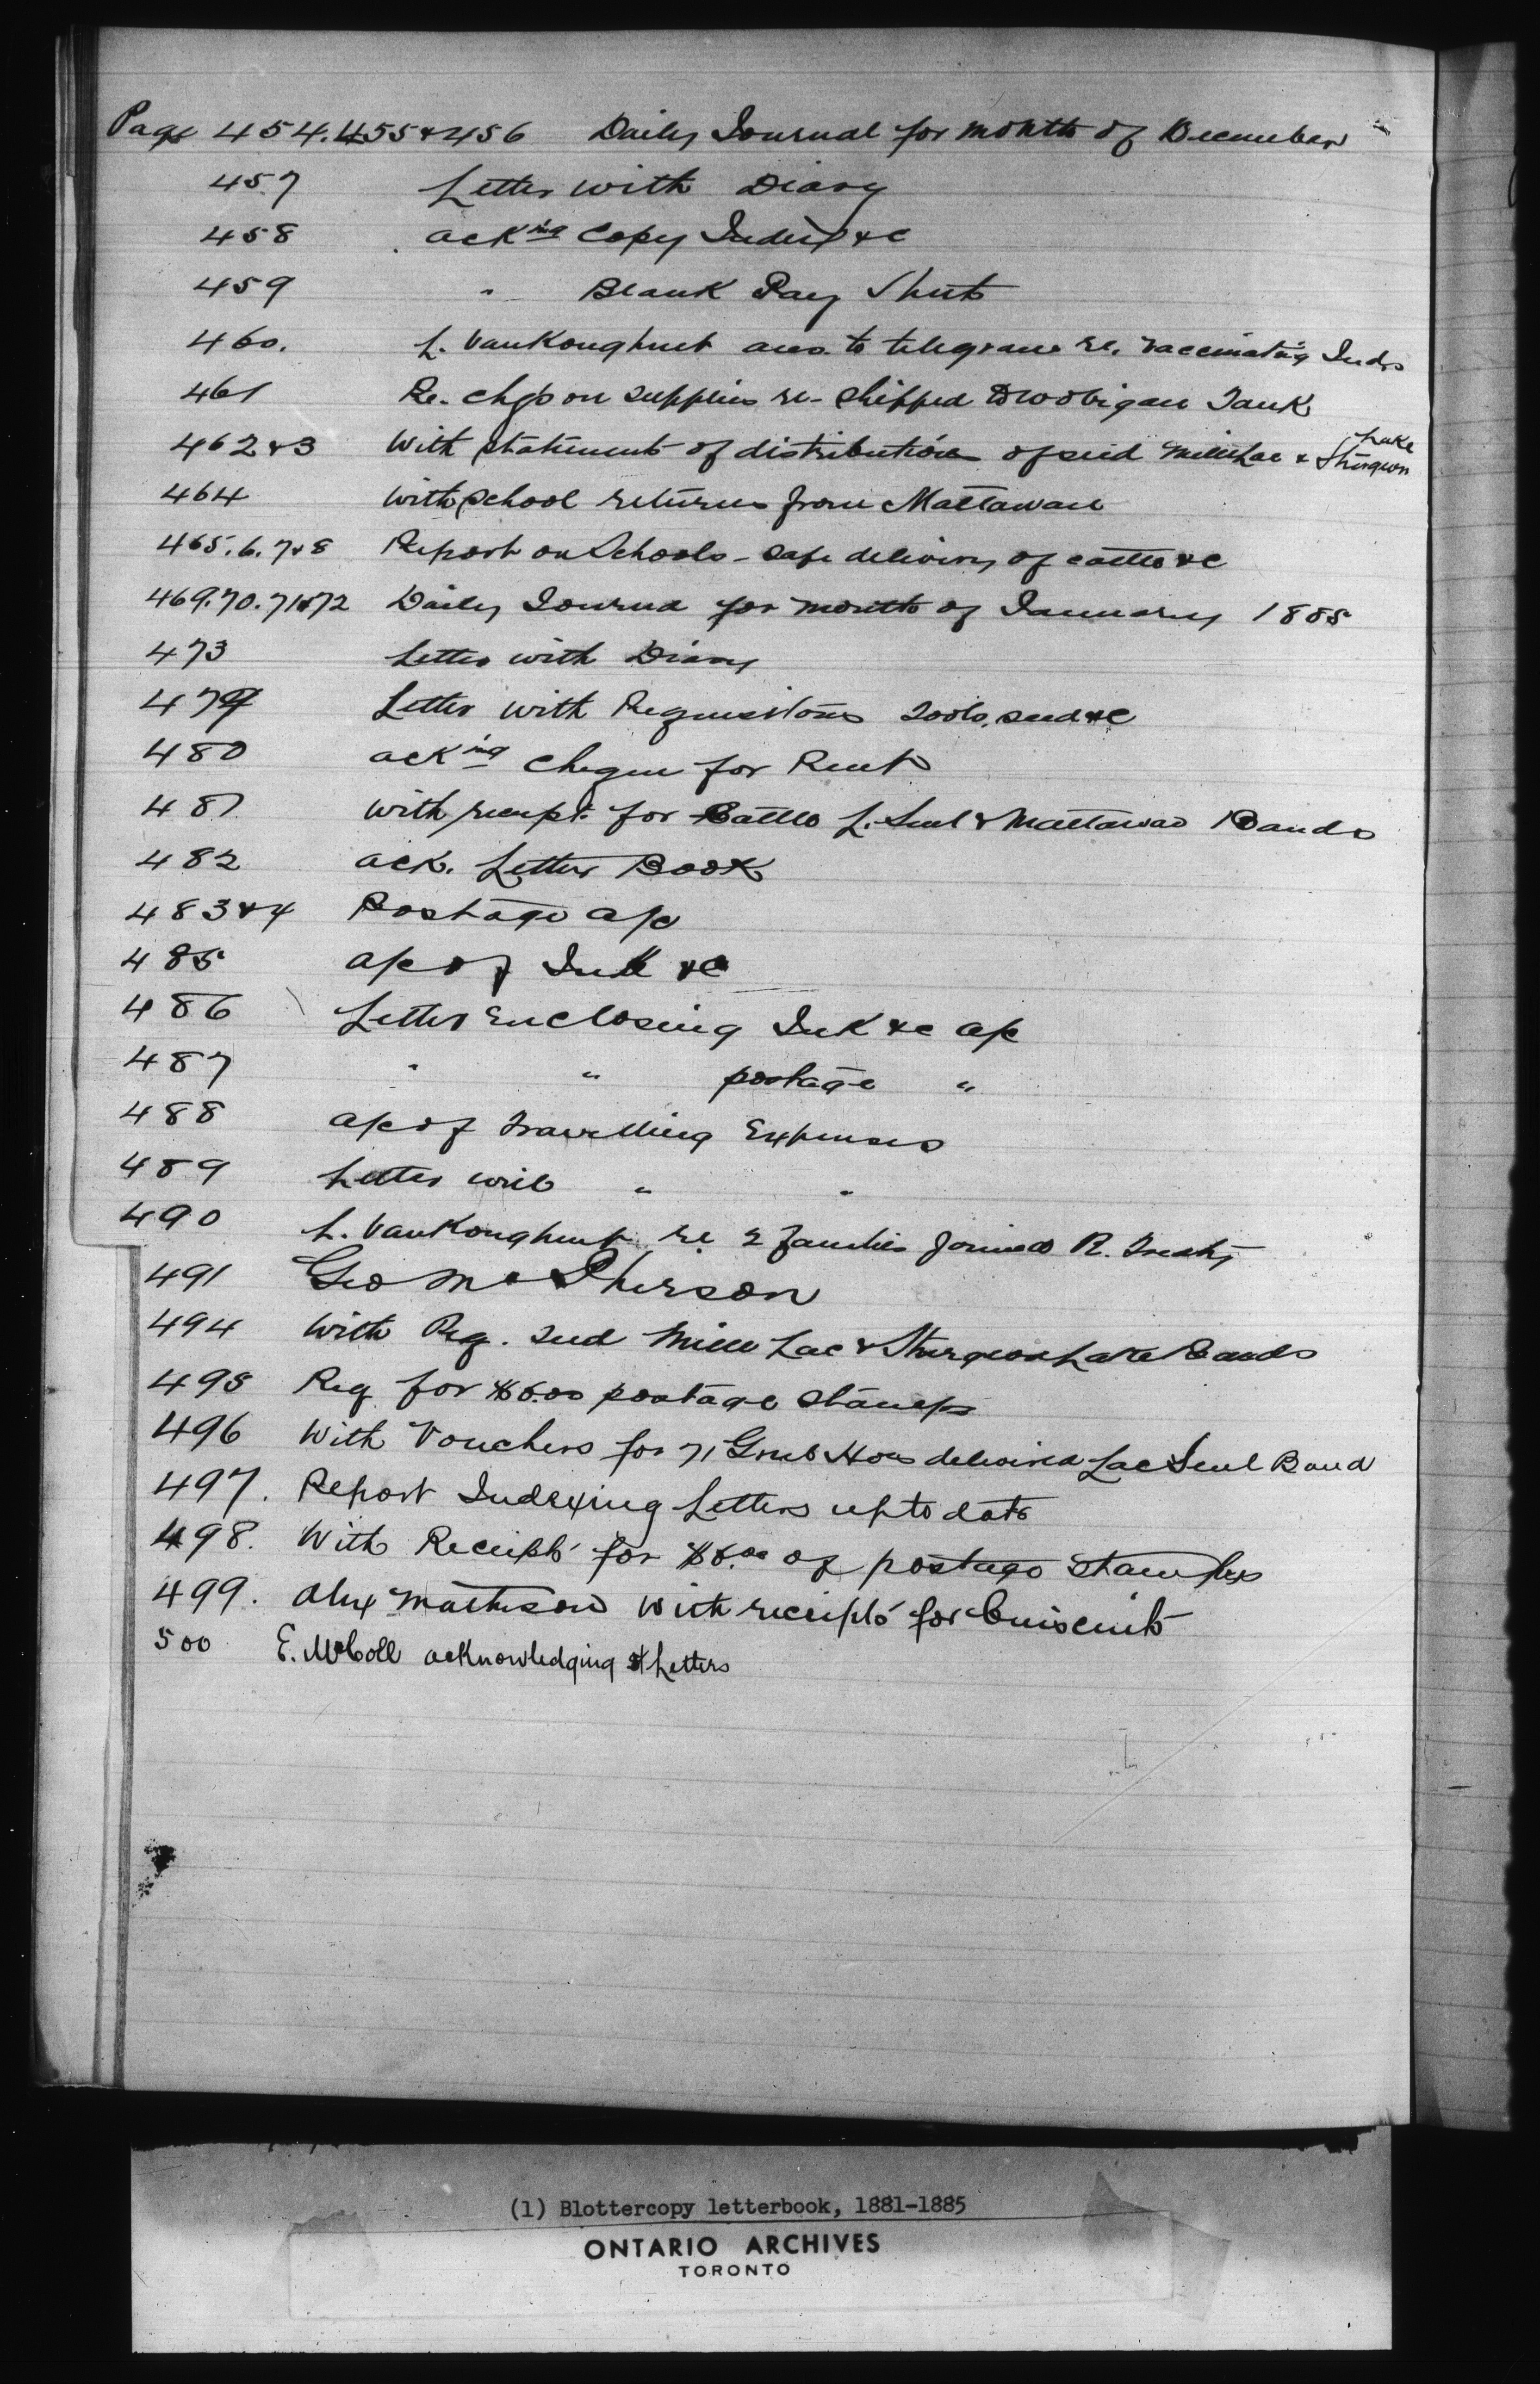 Page 454.455 & 456 Daily Journal for month of December
457 Letter with Diary
458 ack ing Copy Index &c
459 " Blank Pay Sheets
460. L. VanKoughnet ans. to telegram re. vaccinating Inds
461 Re. chgs on supplies re-shipped Wabigan Tank
462 & 3 With statement of distribution of seed Mille Lac & Sturgeon Lake
464 with school returns from Mattawan
465.6.7 & 8 Report on Schools - safe delivery of cattle &c
469.70.71 & 72 Daily Journal for month of January 1885
473 Letter with Diary
479 Letter with Requisitions Tools, seed &c
480 ack ing Cheque for Rent
481 with receipt for Cattle L. Seul & Mattawan Bands
482 ack. Letter Book
483 & 4 Postage a/c
485 a/c of Ink &c
486 Letter Enclosing Ink &c a/c
487 " " postage "
488 a/c of Travelling Expenses
489 Letter with " "
490 L. VanKoughnet re 2 families joined R. Treaty
491 Geo McPherson
494 With Reg. Seed Mille Lac & Sturgeon Lake Bands
495 Req for $5.00 postage stamps
496 With Vouchers for 71 Grub Hoes delivered Lac Seul Band
497. Report Indexing Letters up to date
498. With Receipts for $5.00 of postage stamps
499. Alex Matheson with receipts for biscuits
500 E. McColl acknowledging Letters
(1) Blottercopy letterbook, 1881-1885
ONTARIO ARCHIVES
TORONTO